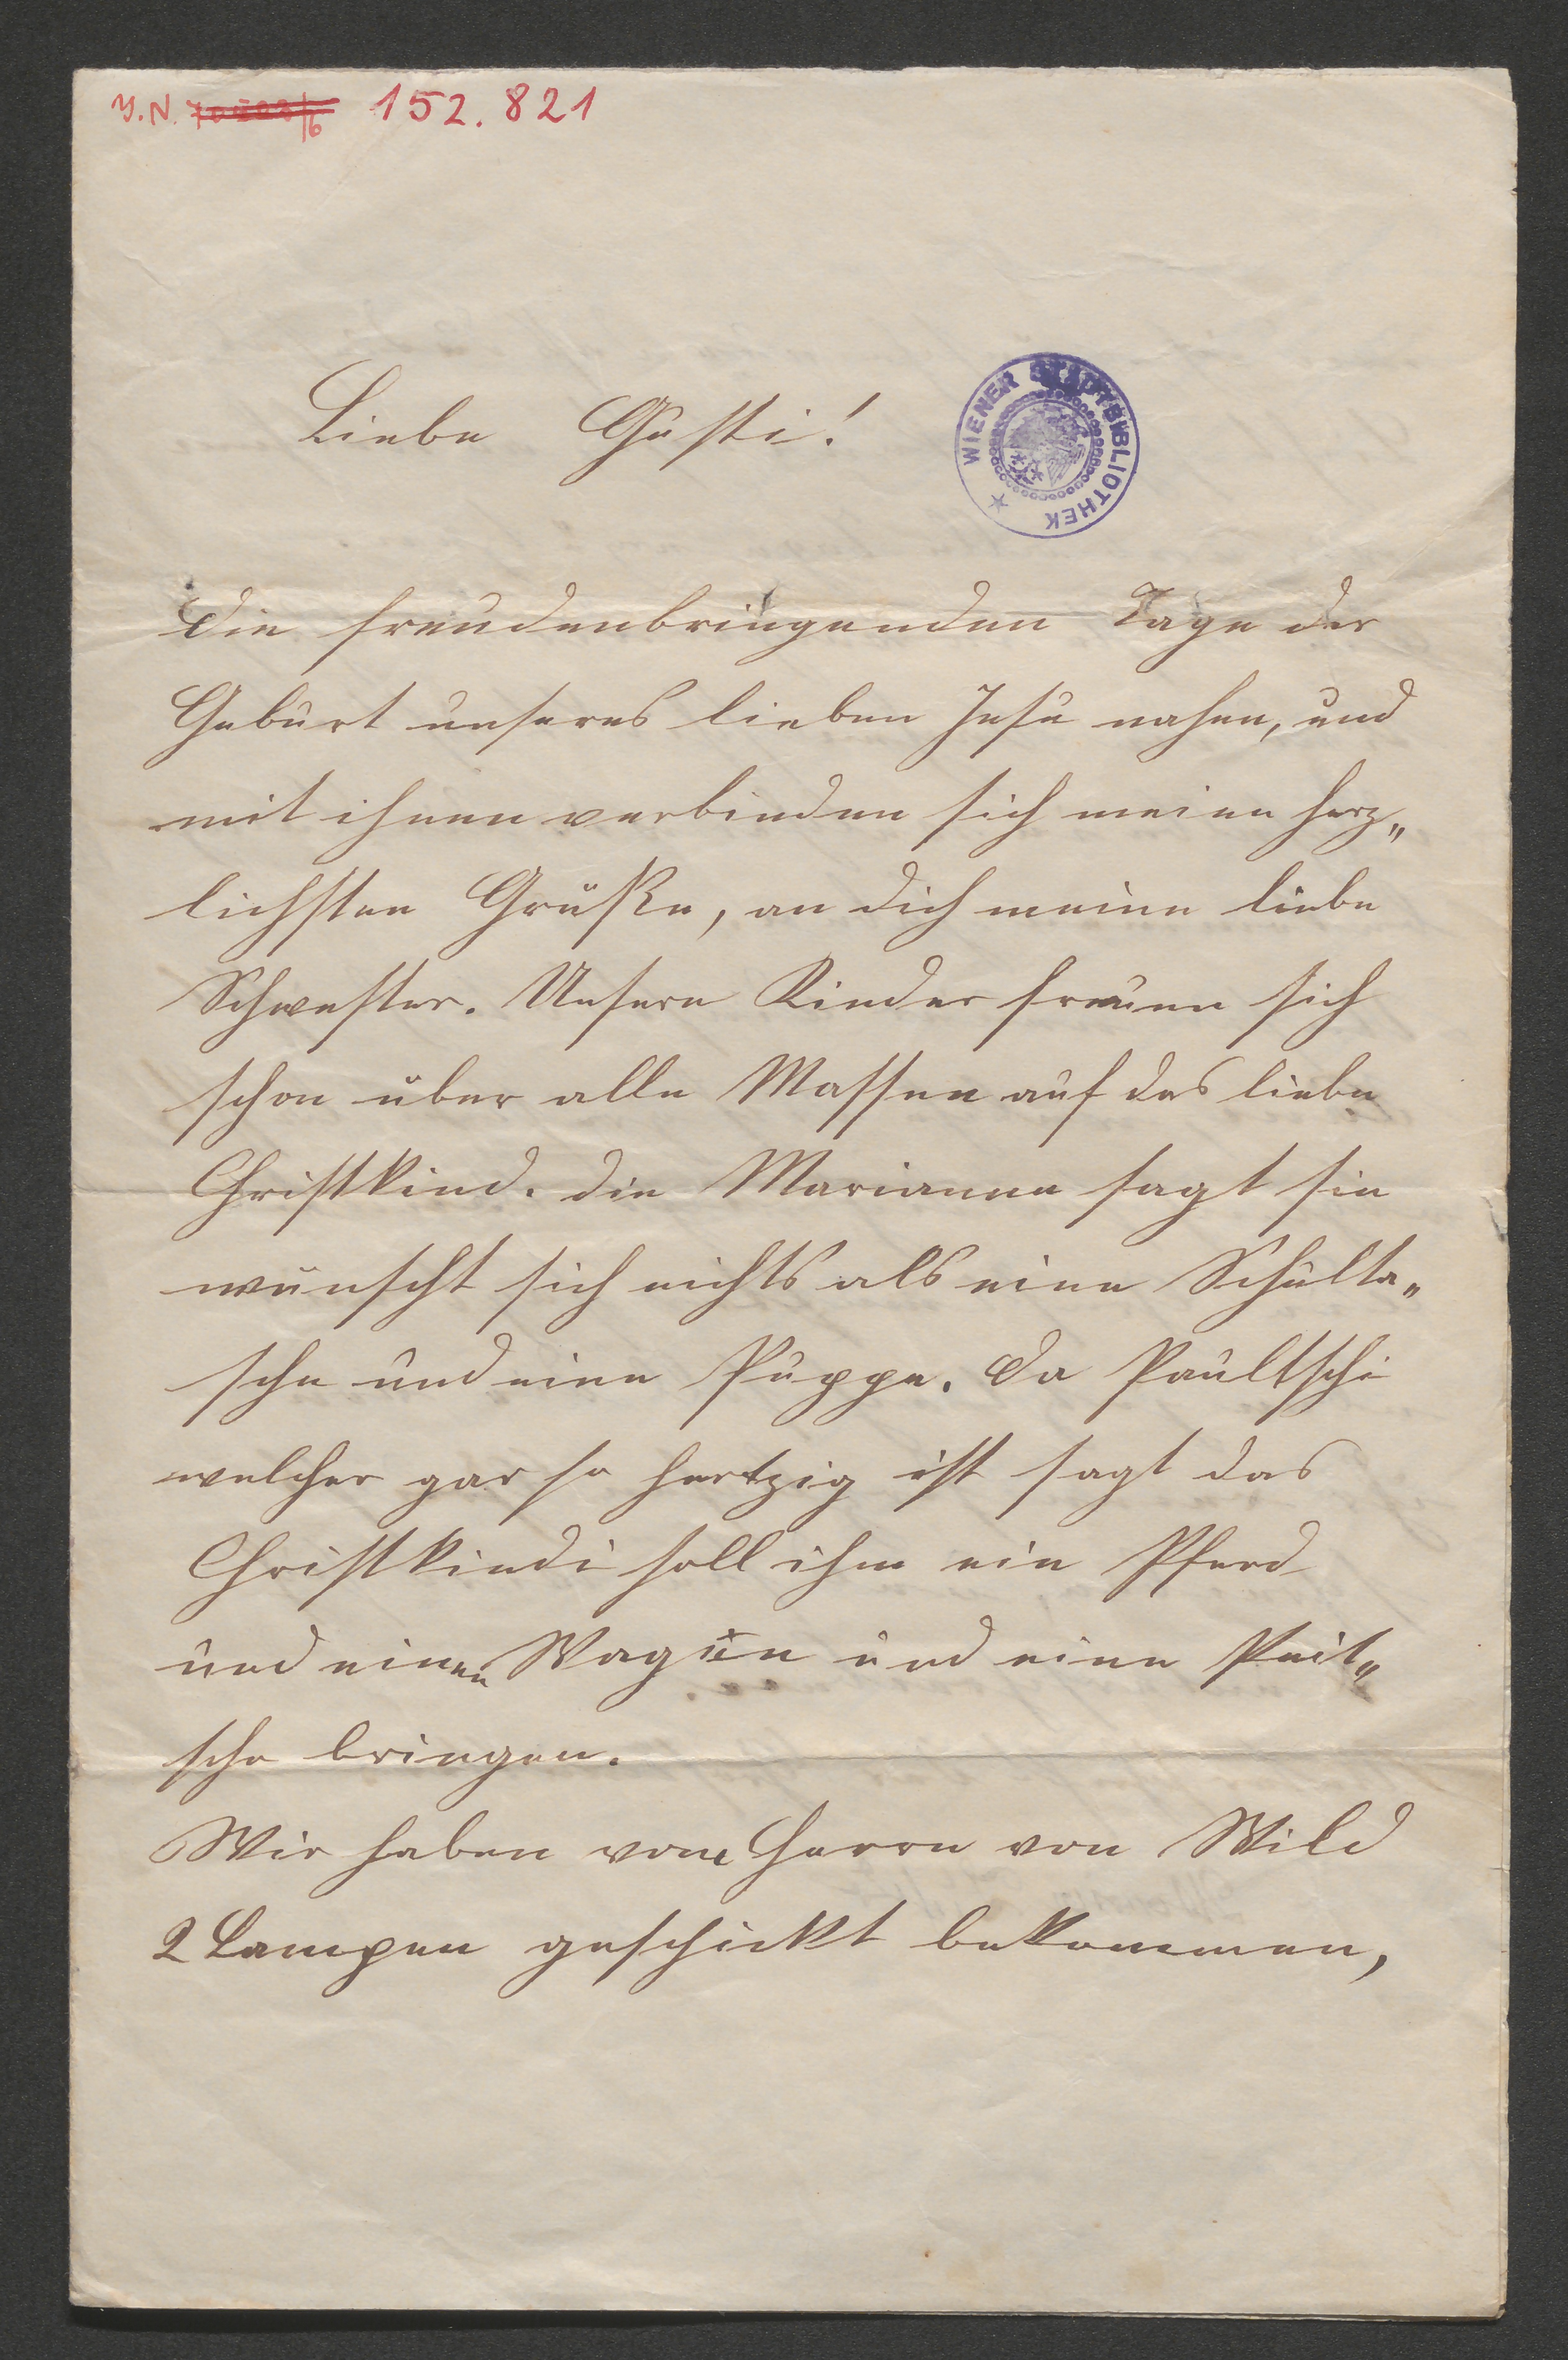 J. N. 152.821
Liebe Gusti!
WIENER STADTBIBLIOTHEK
Die freudenbringenden Tage der
Geburt unseres lieben Jesu nahen, und
mit ihnen verbinden sich meine herz„
lichsten Grüße, an dich meine liebe
Schwester. Unsere Kinder freuen sich
schon über alle Massen auf das liebe
Christkind. die Marianne sagt sie
wünscht sich nichts als eine Schulta„
sche und eine Puppe. Da Paultschi
welcher gar so hertzig ist sagt das
Christkindi soll ihm ein Pferd
und einen Wagen und eine Peit„
sche bringen.
Wir haben vom Herrn von Wild
2 Lampen geschickt bekommen,